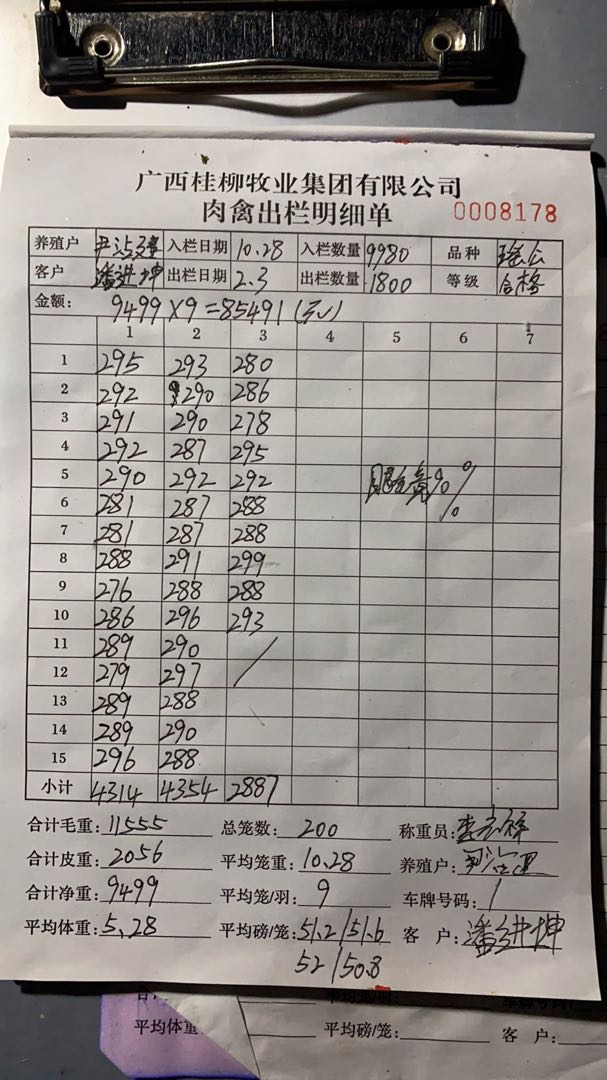 广西桂柳牧业集团有限公司
肉禽出栏明细单 0008178
养殖户 入栏日期 10.28 入栏数量 9980 品种
客户 潘进坤 出栏日期 2.3 出栏数量 1800 等级 合格
金额: 9499×9=85491(元)
1 2 3 4 5 6 7
1 295 293 280
2 292 290 286
3 291 290 278
4 292 287 295
5 290 292 292
6 281 287 288
7 281 287 288
8 288 291 299
9 276 288 288
10 286 296 293
11 289 290 /
12 279 297
13 289 288
14 289 290
15 296 288
小计 4314 4354 2887
合计毛重: 11555 总笼数: 200 称重员:
合计皮重: 2056 平均笼重: 10.28 养殖户:
合计净重: 9499 平均笼/羽: 9 车牌号码: /
平均体重: 5.28 平均磅/笼: 51.2/51.6 客 户: 潘进坤
52/50.8
平均体重: 平均磅/笼: 客 户: